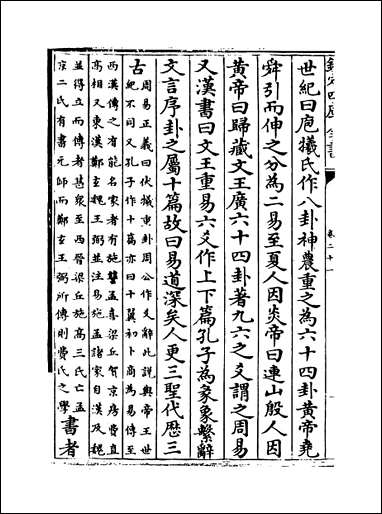 欽定四庫全書
卷二十一
世紀曰庖犧氏作八卦神農重之為六十四卦黄帝堯
舜引而伸之分為二易至夏人因炎帝曰連山殷人因
黄帝曰歸藏文王廣六十四卦著九六之爻謂之周易
又漢書曰文王重易六爻作上下篇孔子為彖象繫辭
文言序卦之屬十篇故曰易道深矣人更三聖代歷三
古
周易正義曰伏犧重卦周公作爻辭此説與帝王世
紀不同又孔子作十篇亦曰十翼初卜商為易傳至
西漢傳之有能名家者有施讐孟喜梁丘賀京房費直
高相又東漢鄭玄魏王弼並注易施孟諸家自漢及魏
並得立而傳者甚衆至西晉梁丘施高三氏亡孟
京二氏有書无師而鄭玄王弼所傳則費氏之學
書者